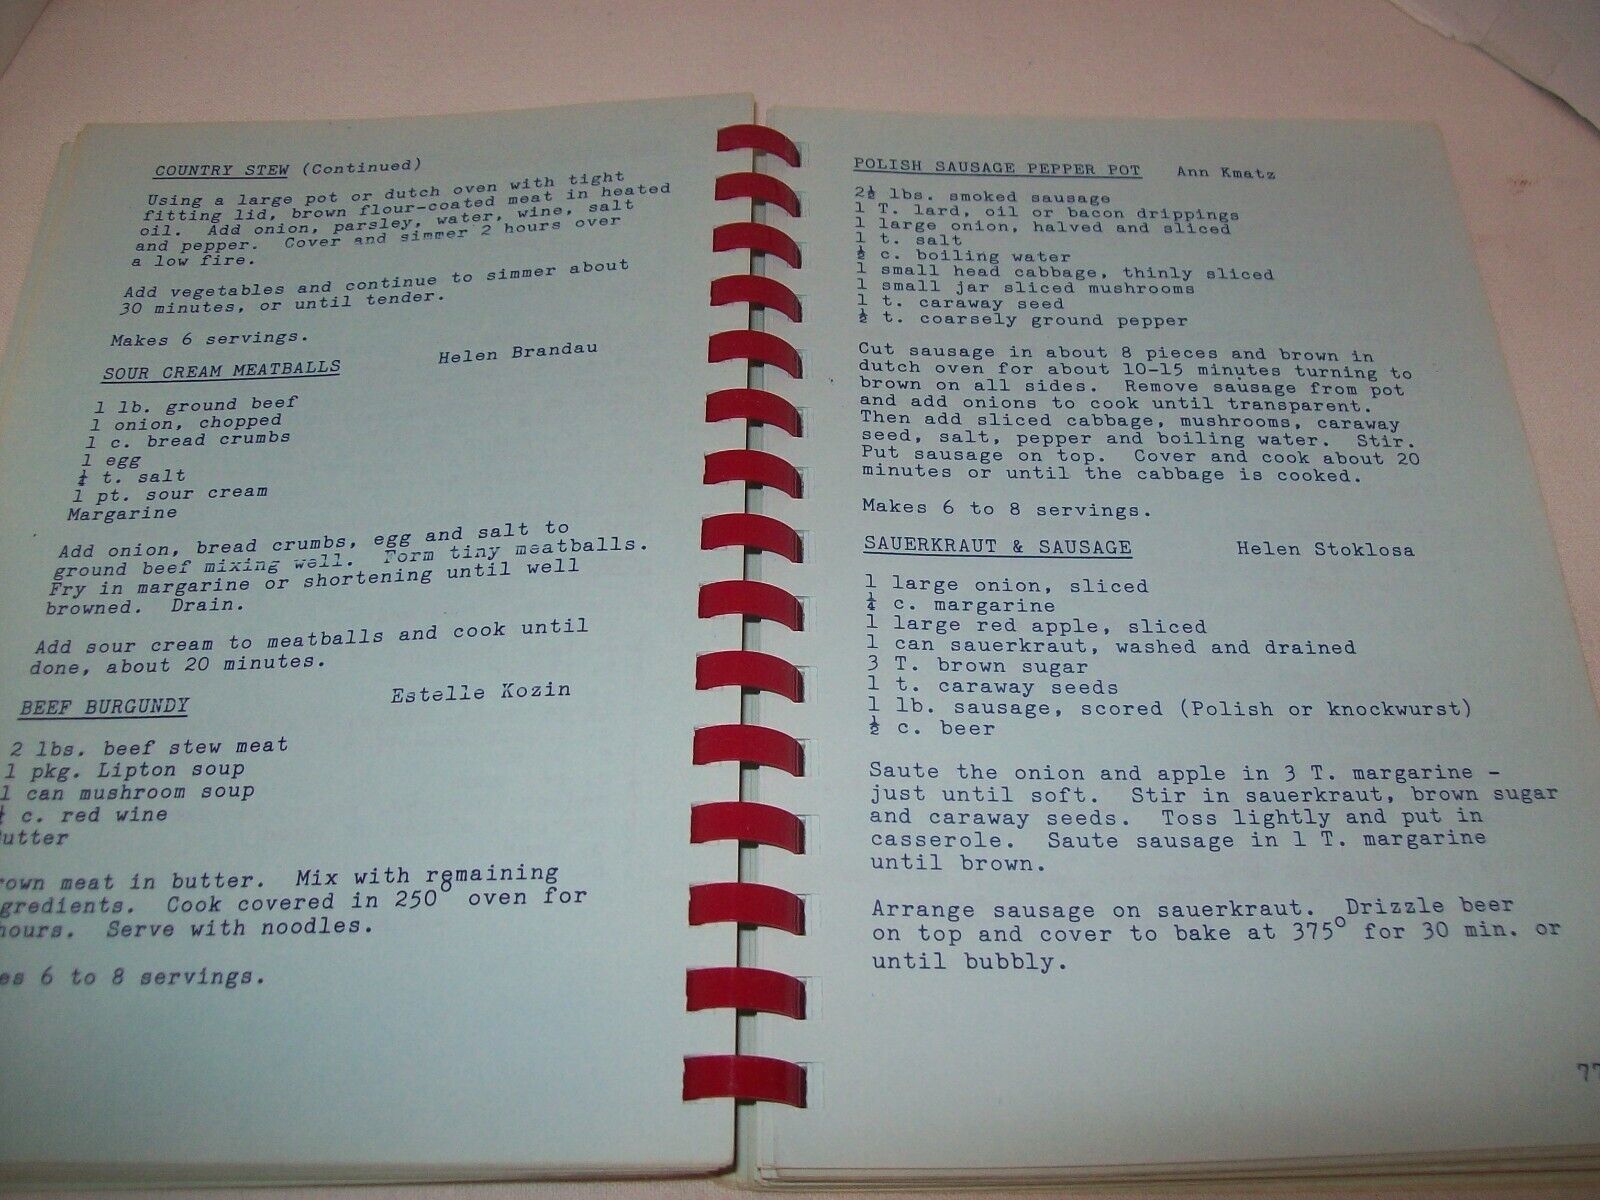 COUNTRY STEW (Continued)
Using a large pot or dutch oven with tight
fitting lid, brown flour-coated meat in heated
oil. Add onion, parsley, water, wine, salt
and pepper. Cover and simmer 2 hours over
a low fire.
Add vegetables and continue to simmer about
30 minutes, or until tender.
Makes 6 servings.
SOUR CREAM MEATBALLS Helen Brandau
1 lb. ground beef
1 onion, chopped
1 c. bread crumbs
1 egg
t. salt
1 pt. sour cream
Margarine
Add onion, bread crumbs, egg and salt to
ground beef mixing well. Form tiny meatballs.
Fry in margarine or shortening until well
browned. Drain.
Add sour cream to meatballs and cook until
done, about 20 minutes.
BEEF BURGUNDY Estelle Kozin
2 lbs. beef stew meat
1 pkg. Lipton soup
1 can mushroom soup
c. red wine
utter
rown meat in butter. Mix with remaining
gredients. Cook covered in 250° oven for
hours. Serve with noodles.
es 6 to 8 servings.
POLISH SAUSAGE PEPPER POT Ann Kmatz
2½ lbs. smoked sausage
1 T. lard, oil or bacon drippings
1 large onion, halved and sliced
1 t. salt
½ c. boiling water
1 small head cabbage, thinly sliced
1 small jar sliced mushrooms
1 t. caraway seed
½ t. coarsely ground pepper
Cut sausage in about 8 pieces and brown in
dutch oven for about 10-15 minutes turning to
brown on all sides. Remove sausage from pot
and add onions to cook until transparent.
Then add sliced cabbage, mushrooms, caraway
seed, salt, pepper and boiling water. Stir.
Put sausage on top. Cover and cook about 20
minutes or until the cabbage is cooked.
Makes 6 to 8 servings.
SAUERKRAUT & SAUSAGE Helen Stoklosa
1 large onion, sliced
¼ c. margarine
1 large red apple, sliced
1 can sauerkraut, washed and drained
3 T. brown sugar
1 t. caraway seeds
1 lb. sausage, scored (Polish or knockwurst)
½ c. beer
Saute the onion and apple in 3 T. margarine -
just until soft. Stir in sauerkraut, brown sugar
and caraway seeds. Toss lightly and put in
casserole. Saute sausage in 1 T. margarine
until brown.
Arrange sausage on sauerkraut. Drizzle beer
on top and cover to bake at 375° for 30 min. or
until bubbly.
77